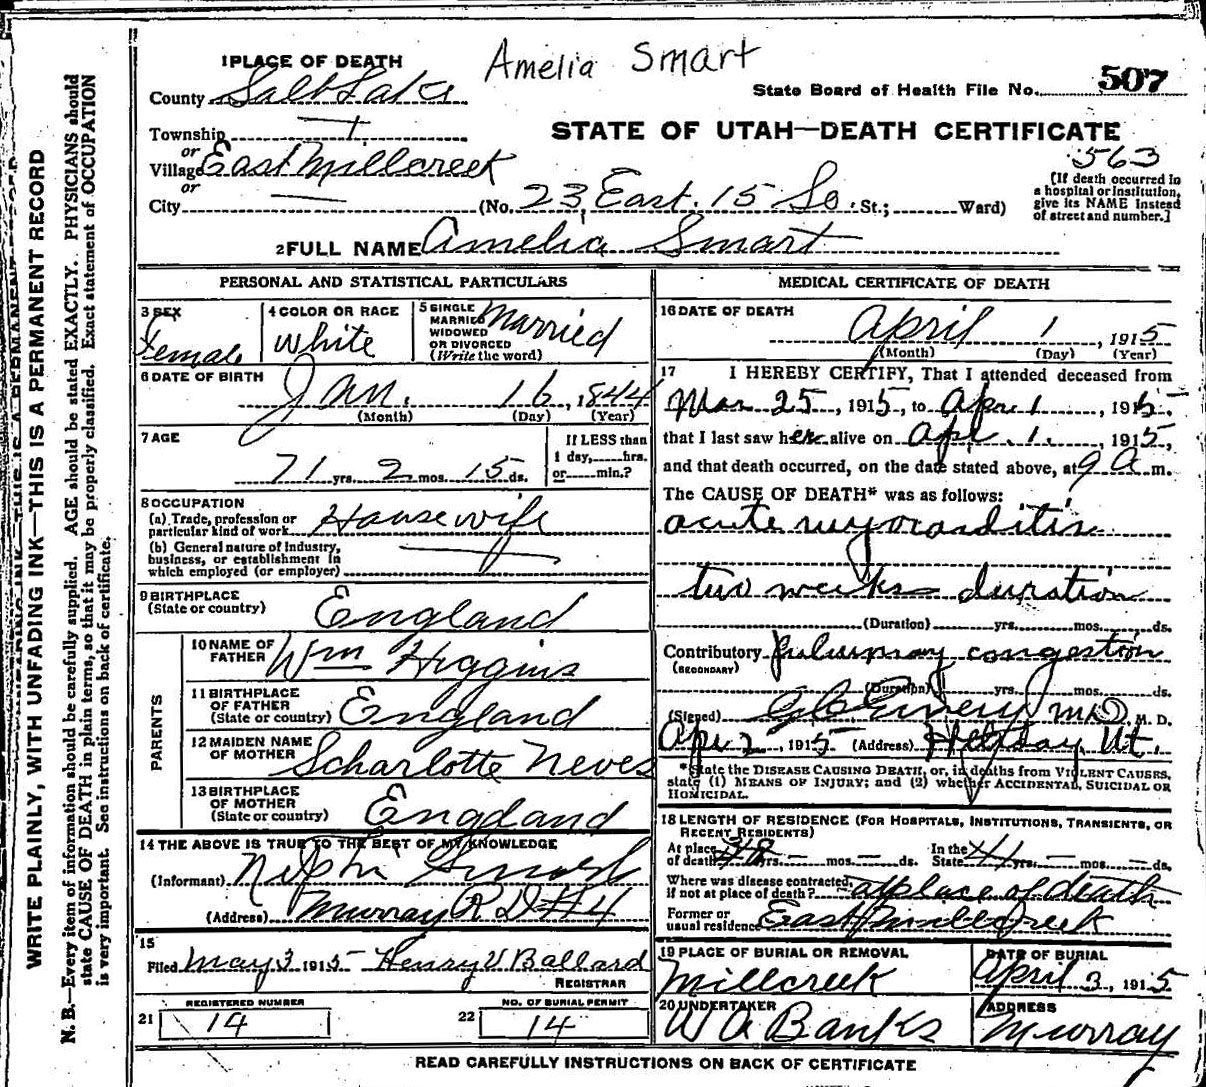 Amelia Smart
1 PLACE OF DEATH
County Salt Lake
State Board of Health File No. 507
Township
or
Village East Millcreek
or
City
STATE OF UTAH—DEATH CERTIFICATE
563
(No. 23 East. 15 So. St.; Ward)
[If death occurred in
a hospital or institution,
give its NAME instead
of street and number.]
2 FULL NAME Amelia Smart
PERSONAL AND STATISTICAL PARTICULARS
3 SEX
Female
4 COLOR OR RACE
White
5 SINGLE
MARRIED
WIDOWED
OR DIVORCED
(Write the word)
Married
6 DATE OF BIRTH
Jan. 16, 1844
(Month) (Day) (Year)
7 AGE
71 yrs. 2 mos. 15 ds.
If LESS than
1 day, hrs.
or min.?
8 OCCUPATION
(a) Trade, profession or
particular kind of work Housewife
(b) General nature of industry,
business, or establishment in
which employed (or employer)
9 BIRTHPLACE
(State or country) England
PARENTS
10 NAME OF
FATHER Wm Higgins
11 BIRTHPLACE
OF FATHER
(State or country) England
12 MAIDEN NAME
OF MOTHER Scharlotte Neves
13 BIRTHPLACE
OF MOTHER
(State or country) Engdand
14 THE ABOVE IS TRUE TO THE BEST OF MY KNOWLEDGE
(Informant) Nephi Smart
(Address) Murray R D #4
15
Filed May 3 1915 Henry V Ballard
REGISTRAR
REGISTERED NUMBER
21 14
NO. OF BURIAL PERMIT
22 14
MEDICAL CERTIFICATE OF DEATH
16 DATE OF DEATH
April 1, 1915
(Month) (Day) (Year)
17 I HEREBY CERTIFY, That I attended deceased from
Mar 25, 1915, to Apr. 1, 1915.
that I last saw her alive on Apl. 1., 1915,
and that death occurred, on the date stated above, at 9 A m.
The CAUSE OF DEATH* was as follows:
acute myocarditis
two weeks duration
(Duration) yrs. mos. ds.
Contributory pulumnay congestion
(SECONDARY)
(Duration) yrs. mos. ds.
(Signed) M.D. M. D.
Apr 2, 1915 (Address) Holliday, Ut.
*State the DISEASE CAUSING DEATH, or, in deaths from VIOLENT CAUSES,
state (1) MEANS OF INJURY; and (2) whether ACCIDENTAL, SUICIDAL OR
HOMICIDAL.
18 LENGTH OF RESIDENCE (FOR HOSPITALS, INSTITUTIONS, TRANSIENTS, OR
RECENT RESIDENTS)
At place
of death yrs. — mos. — ds.
In the
State 41 yrs. — mos. — ds.
Where was disease contracted,
if not at place of death? at place of death
Former or
usual residence East Millcreek
19 PLACE OF BURIAL OR REMOVAL
Millcreek
DATE OF BURIAL
April 3, 1915
20 UNDERTAKER
W A Banks
ADDRESS
Murray
READ CAREFULLY INSTRUCTIONS ON BACK OF CERTIFICATE
WRITE PLAINLY, WITH UNFADING INK—THIS IS A PERMANENT RECORD
N. B.—Every item of information should be carefully supplied. AGE should be stated EXACTLY. PHYSICIANS should
state CAUSE OF DEATH in plain terms, so that it may be properly classified. Exact statement of OCCUPATION
is very important. See instructions on back of certificate.